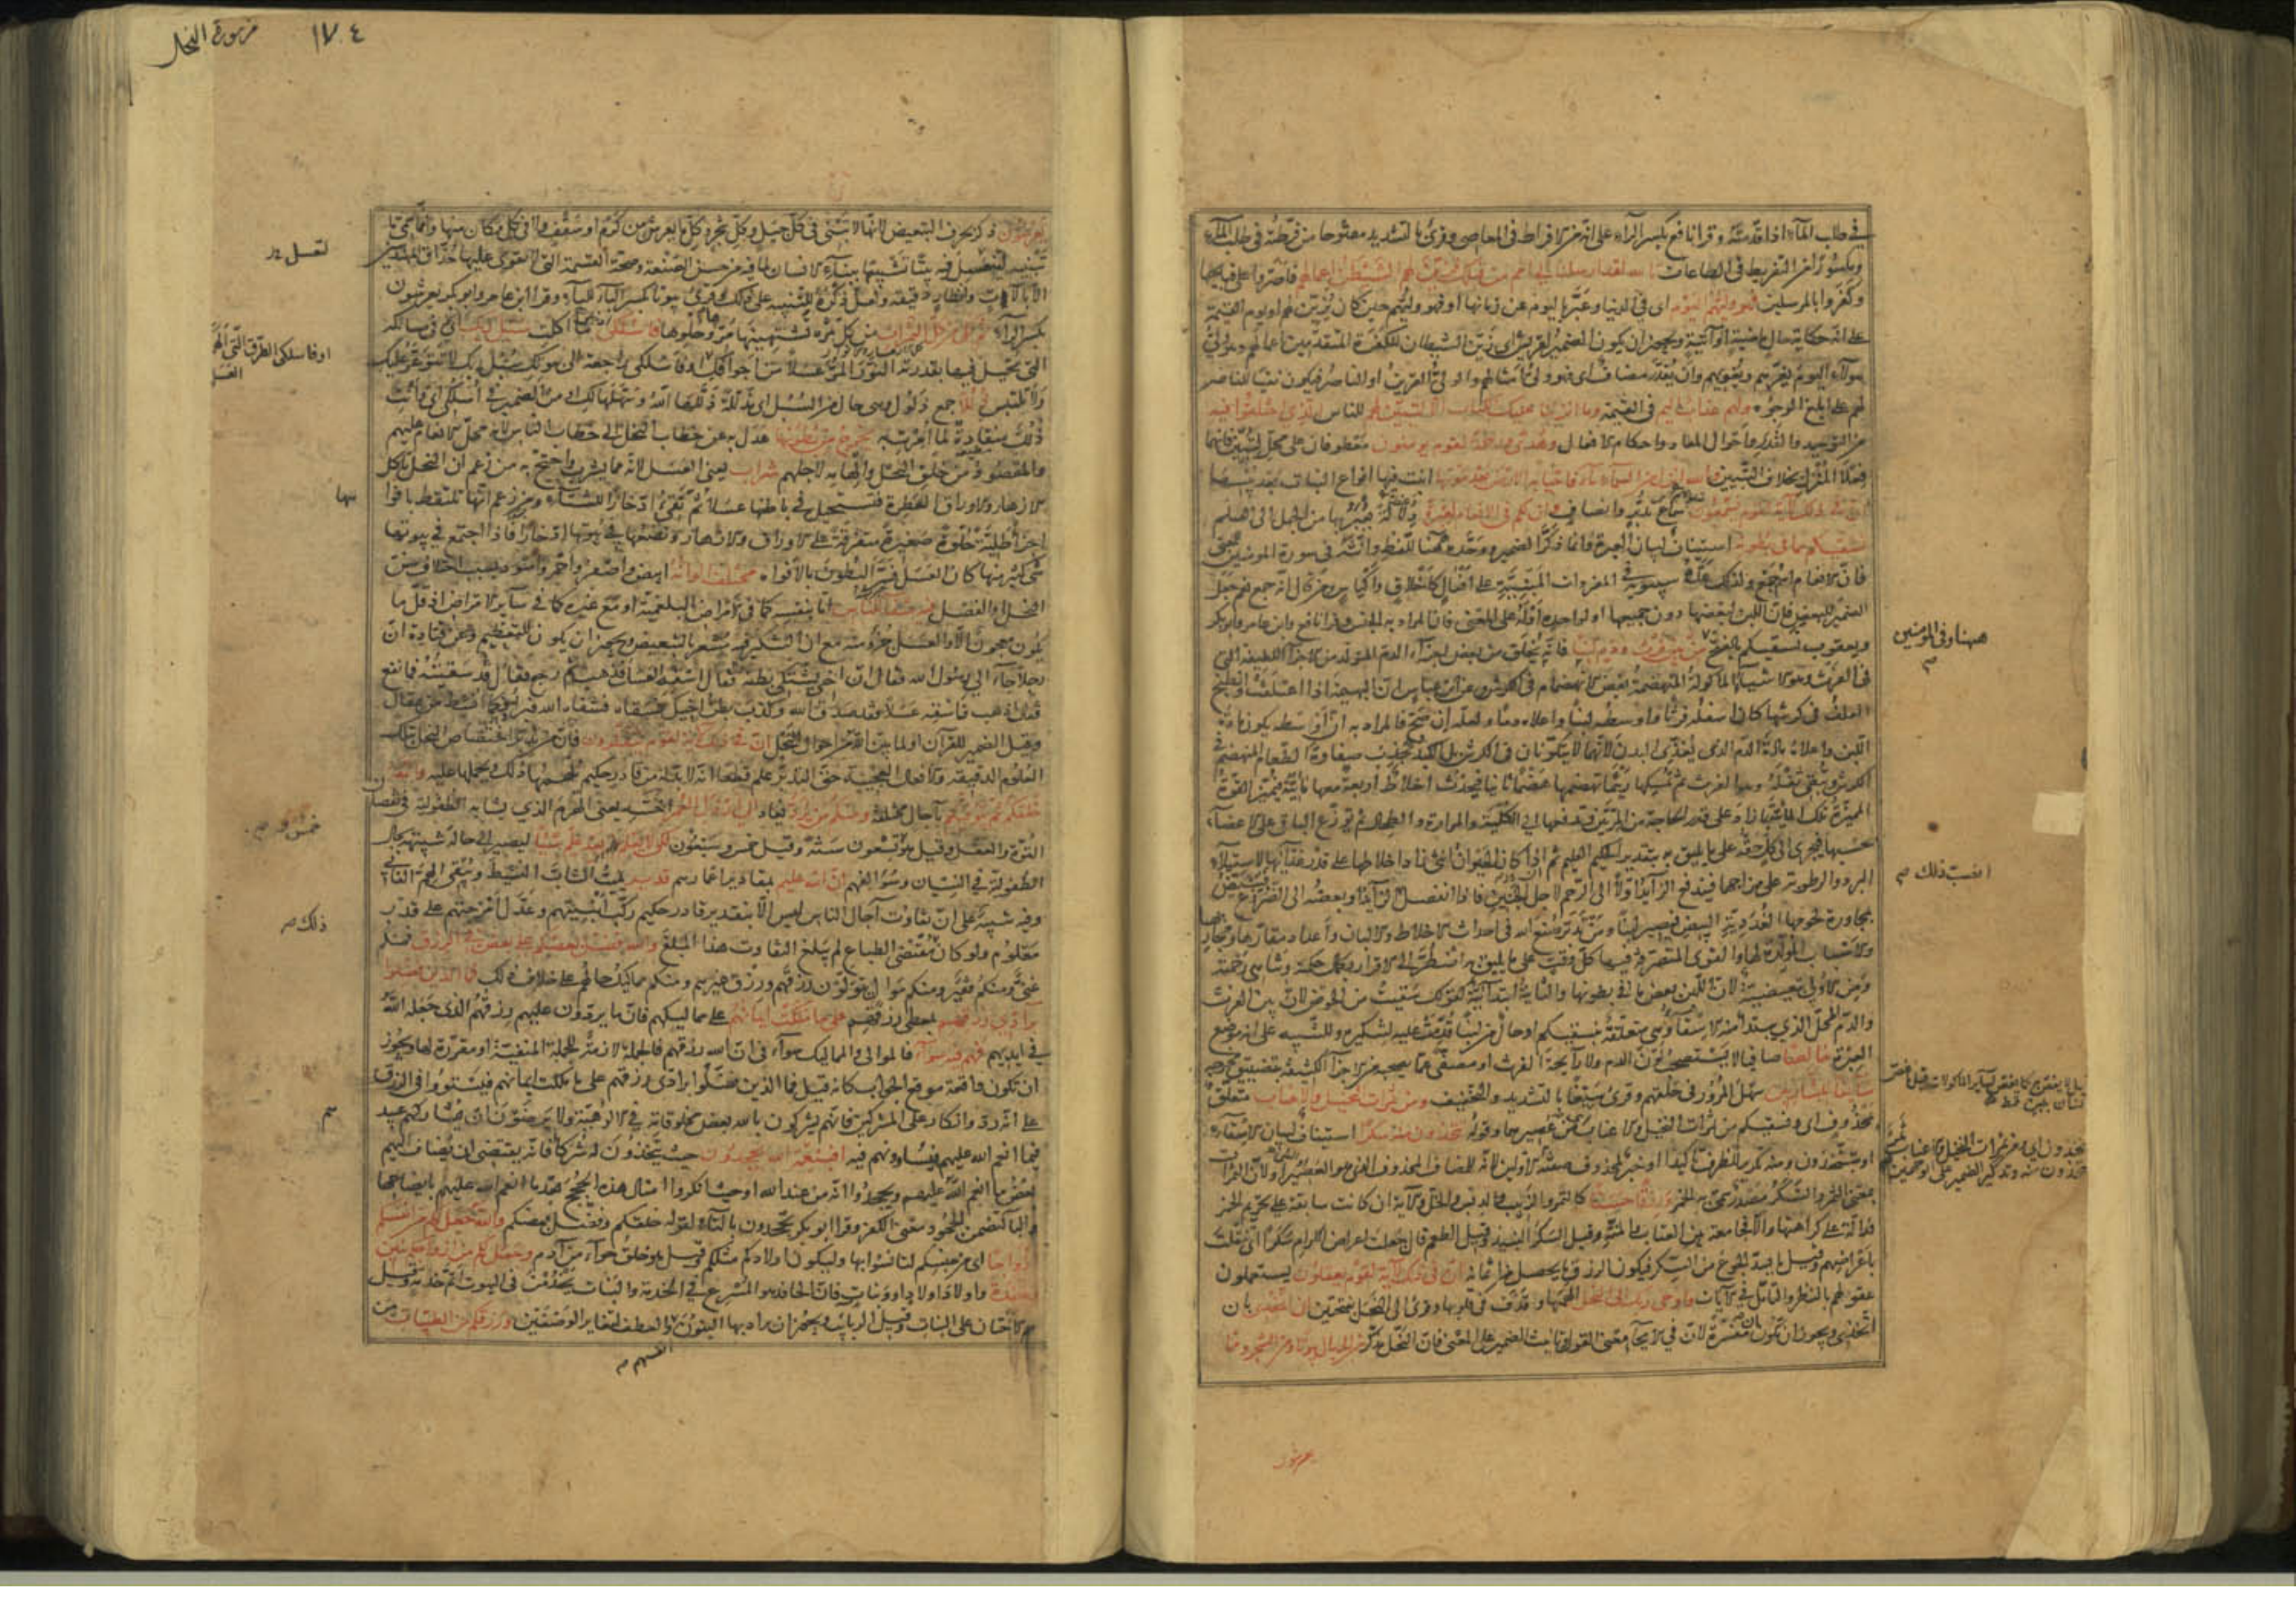 في طلب الماء اذا قدمته وقرا نافع بكسر الراء على انه من الافراط في المعاصي وقرئ بالتشديد مفتوحا من فرطته في طلب الماء
ومكسورا من التفريط في الطاعات تالله لقد ارسلنا الى امم من قبلك فزين لهم الشيطان اعمالهم فاصروا على قبايحها
وكفروا بالمرسلين فهو وليهم اليوم اى في الدنيا وعبر باليوم عن زمانها او فهو وليهم حين كان يزين لهم او يوم القيمة
على انه حكاية حال ماضية او آتية ويجوز ان يكون الضمير لقريش اى زين الشيطان للكفرة المتقدمين اعمالهم وهو ولى
هولاء اليوم يغريهم ويغويهم وان يقدر مضاف اى فهو ولى امثالهم والولى القرين او الناصر فيكون نفيا للناصر
لهم على ابلغ الوجوه ولهم عذاب اليم في القيمة وما انزلنا عليك الكتاب الا لتبين لهم للناس الذي اختلفوا فيه
من التوحيد والقدر واحوال المعاد واحكام الافعال وهدى ورحمة لقوم يومنون معطوفان على محل لتبين فانهما
فعلا المنزل بخلاف التبيين والله انزل من السماء ماء فاحيا به الارض بعد موتها انبت فيها انواع النبات بعد يبسها
ان في ذلك لآية لقوم يسمعون سماع تدبر وانصاف وان لكم في الانعام لعبرة دلالة يعبر بها من الجهل الى العلم
نسقيكم مما في بطونه استيناف لبيان العبرة وانما ذكر الضمير ووحده ههنا للفظ وانثه في سورة المومنين للمعنى
فان الانعام اسم جمع ولذلك عده سيبويه في المفردات المبنية على افعال كاخلاق واكياش ومن قال انه جمع نعم جعل
الضمير للبعض فان اللبن لبعضها دون جميعها او لواحده او له على المعنى فان المراد به الجنس وقرا نافع وابن عامر وابو بكر
ويعقوب نسقيكم بالفتح من بين فرث ودم لبنا فانه يخلق من بعض اجزاء الدم المتولد من الاجزاء اللطيفة التي
في الفرث وهو الاشياء الماكولة المنهضمة بعض الانهضام في الكرش وعن ابن عباس ان البهيمة اذا اعتلفت وانطبخ
العلف في كرشها كان اسفله فرثا واوسطه لبنا واعلاه دما ولعله ان صح فالمراد به ان اوسطه يكون مادة
اللبن واعلاه مادة الدم الذى يغذى البدن لانهما لا يتكونان في الكرش بل الكبد يجذب صفاوة الطعام المنهضم في
الكرش ويبقى ثفله وهو الفرث ثم يمسكها ريثما تهضمها هضما ثانيا فيحدث اخلاطا اربعة معها مائية فتميز القوة
المميزة تلك المائية بما زاد على قدر الحاجة من المرتين وتدفعها الى الكلية والمرارة والطحال ثم توزع الباقي على الاعضاء
بحسبها فيجرى الى كل حقه على ما يليق به بتقدير الحكيم العليم ثم ان كان الحيوان انثى زاد اخلاطها على قدر غذائها لاستيلاء
البرد والرطوبة على مزاجها فيندفع الزايد اولا الى الرحم لاجل الجنين فاذا انفصل انصب ذلك الزايد او بعضه الى الضروع فيبيض
بمجاورة لحومها الغددية البيض فيصير لبنا ومن تدبر صنع الله في احداث الاخلاط والالبان واعداد مقارها ومجاريها
والاسباب المولدة لها والقوى المتصرفة فيها كل وقت على ما يليق به اضطر الى الاقرار بكمال حكمته وتناهى رحمته
ومن الاولى تبعيضية لان اللبن بعض ما في بطونها والثانية ابتدائية كقولك سقيت من الحوض لان بين الفرث
والدم المحل الذي يبتدا منه الاسقاء وهي متعلقة بنسقيكم او حال من لبنا قدمت عليه لتنكيره وللتنبيه على انه موضع
العبرة خالصا صافيا لا يستصحب لون الدم ولا رايحة الفرث او مصفى عما يصحبه من الاجزاء الكثيفة بتضييق مخرجه
سايغا للشاربين سهل المرور في حلقهم وقرئ سيغا بالتشديد والتخفيف ومن ثمرات النخيل والاعناب متعلق
بمحذوف اى ونسقيكم من ثمرات النخيل والاعناب اى من عصيرهما وقوله تتخذون منه سكرا استيناف لبيان الاسقاء
او بتتخذون ومنه تكرير للظرف تاكيدا او خبر لمحذوف صفته تتخذون لانه للمضاف المحذوف الذي هو العصير او لان الثمرات
بمعنى الثمر والسكر مصدر سمى به الخمر ورزقا حسنا كالتمر والزبيب والدبس والخل والآية ان كانت سابقة على تحريم الخمر
فدالة على كراهتها والا فجامعة بين العتاب والمنة وقيل السكر النبيذ وقيل الطعم قال جعلت اعراض الكرام سكرا اى تنقلت
باعراضهم وقيل ما يسد الجوع من السكر فيكون الرزق ما يحصل من اثمانه ان في ذلك لآية لقوم يعقلون يستعملون
عقولهم بالنظر والتامل في الآيات واوحى ربك الى النحل الهمها وقذف في قلوبها وقرئ الى النحل بفتحتين ان اتخذى بان
اتخذي ويجوز ان تكون ان مفسرة لان في الايحاء معنى القول وتانيث الضمير على المعنى فان النحل مذكر من الجبال بيوتا ومن الشجر ومما
ههنا وفي المومنين
انصب ذلك صح
يعرشون
من سورة النحل
١٧٤
يعرشون ذكر بحرف التبعيض لانها لا تبنى في كل جبل وكل شجر وكل ما يعرش من كرم او سقف ولا في كل مكان منها وانما سمى ما
تبنيه لتتعسل فيه بيتا تشبيها ببناء الانسان لما فيه من حسن الصنعة وصحة القسمة التي لا يقوى عليها حذاق المهندسين
الا بآلات وانظار دقيقة ولعل ذكره للتنبيه على ذلك وقرئ بيوتا بكسر الباء للياء وقرا ابن عامر وابو بكر يعرشون
بضم الراء ثم كلى من كل الثمرات من كل ثمرة تشتهينها مرها وحلوها فاسلكى ما اكلت سبل ربك في مسالكه
التي يحيل فيها بقدرته النور المر عسلا من اجوافك او فاسلكي راجعة الى بيوتك سبل ربك لا تتوعر عليك
ولا تلتبس ذللا جمع ذلول وهى حال من السبل اى مذللة ذللها الله وسهلها لك او من الضمير في اسلكي اى وانت
ذلل منقادة لما امرت به يخرج من بطونها عدل به عن خطاب النحل الى خطاب الناس لانه محل الانعام عليهم
والمقصود من خلق النحل والهامه لاجلهم شراب يعنى العسل لانه مما يشرب واحتج به من زعم ان النحل ياكل
الازهار والاوراق العطرة فتستحيل في باطنها عسلا ثم تقئ ادخارا للشتاء ومن زعم انها تلتقط بافواهها
اجزاء طلية حلوة صغيرة متفرقة على الاوراق والازهار وتضعها في بيوتها ادخارا فاذا اجتمع في بيوتها
شئ كثير منها كان العسل فسر البطون بالافواه مختلف الوانه ابيض واصفر واحمر واسود بسبب اختلاف سن
النحل او الفصل فيه شفاء للناس اما بنفسه كما في الامراض البلغمية او مع غيره كما في ساير الامراض اذ قل ما
يكون معجون الا والعسل جزء منه مع ان التنكير فيه مشعر بالتبعيض ويجوز ان يكون للتعظيم وعن قتادة ان
رجلا جاء الى رسول الله فقال ان اخى يشتكى بطنه فقال اسقه العسل فذهب ثم رجع فقال قد سقيته فما نفع
فقال اذهب فاسقه عسلا فقد صدق الله وكذب بطن اخيك فسقاه فشفاه الله فبرا فكانما انشط من عقال
وقيل الضمير للقرآن او لما بين الله من احوال النحل ان في ذلك لآية لقوم يتفكرون فان من تدبر اختصاص النحل بتلك
العلوم الدقيقة والافعال العجيبة حق التدبر علم قطعا انه لا بد له من قادر حكيم يلهمها ذلك ويحملها عليه والله
خلقكم ثم يتوفيكم بآجال مختلفة ومنكم من يرد يعاد الى ارذل العمر اخسه يعنى الهرم الذي يشابه الطفولية في نقصان
القوة والعقل وقيل هو تسعون سنة وقيل خمس وسبعون لكى لا يعلم بعد علم شيئا ليصير الى حالة شبيهة بحال
الطفولية في النسيان وسوء الفهم ان الله عليم بمقادير اعمارهم قدير يميت الشاب النشيط ويبقى الهرم الفاني
وفيه تنبيه على ان تفاوت آجال الناس ليس الا بتقدير قادر حكيم ركب ابنيتهم وعدل امزجتهم على قدر
معلوم ولو كان مقتضى الطباع لم يبلغ التفاوت هذا المبلغ والله فضل بعضكم على بعض في الرزق فمنكم
غنى ومنكم فقير ومنكم موال يتولون رزقهم ورزق غيرهم ومنكم مماليك حالهم على خلاف ذلك فما الذين فضلوا
برآدي رزقهم بمعطى رزقهم على ما ملكت ايمانهم على مماليكهم فان ما يردون عليهم رزقهم الذى جعله الله
في ايديهم فهم فيه سواء فالموالى والمماليك سواء في ان الله رزقهم فالجملة لازمة للجملة المنفية او مقررة لها ويجوز
ان تكون واقعة موقع الجواب كانه قيل فما الذين فضلوا برادى رزقهم على ما ملكت ايمانهم فيستووا في الرزق
على انه رد وانكار على المشركين فانهم يشركون بالله بعض مخلوقاته في الالوهية ولا يرضون ان يشاركهم عبيدهم
فيما انعم الله عليهم فيساويهم فيه افبنعمة الله يجحدون حيث يتخذون له شركاء فانه يقتضى ان يضاف اليهم
بعض ما انعم الله عليهم ويجحدوا انه من عند الله او حيث انكروا امثال هذه الحجج بعد ما انعم الله عليهم بايضاحها
والباء لتضمن الجحود معنى الكفر وقرا ابو بكر تجحدون بالتاء لقوله خلقكم وفضل بعضكم والله جعل لكم من انفسكم
ازواجا اى من جنسكم لتانسوا بها وليكون اولادكم مثلكم وقيل هو خلق حواء من آدم وجعل لكم من ازواجكم بنين
وحفدة واولاد اولاد او وبنات فان الحافد هو المسرع في الخدمة والبنات يخدمن في البيوت اتم خدمة وقيل
هم الاختان على البنات وقيل الربايب ويجوز ان يراد بها البنون والعطف لتغاير الوصفين ورزقكم من الطيبات من
لتعسل
او فاسلكي الطرق التي الهمك
ذلك صح